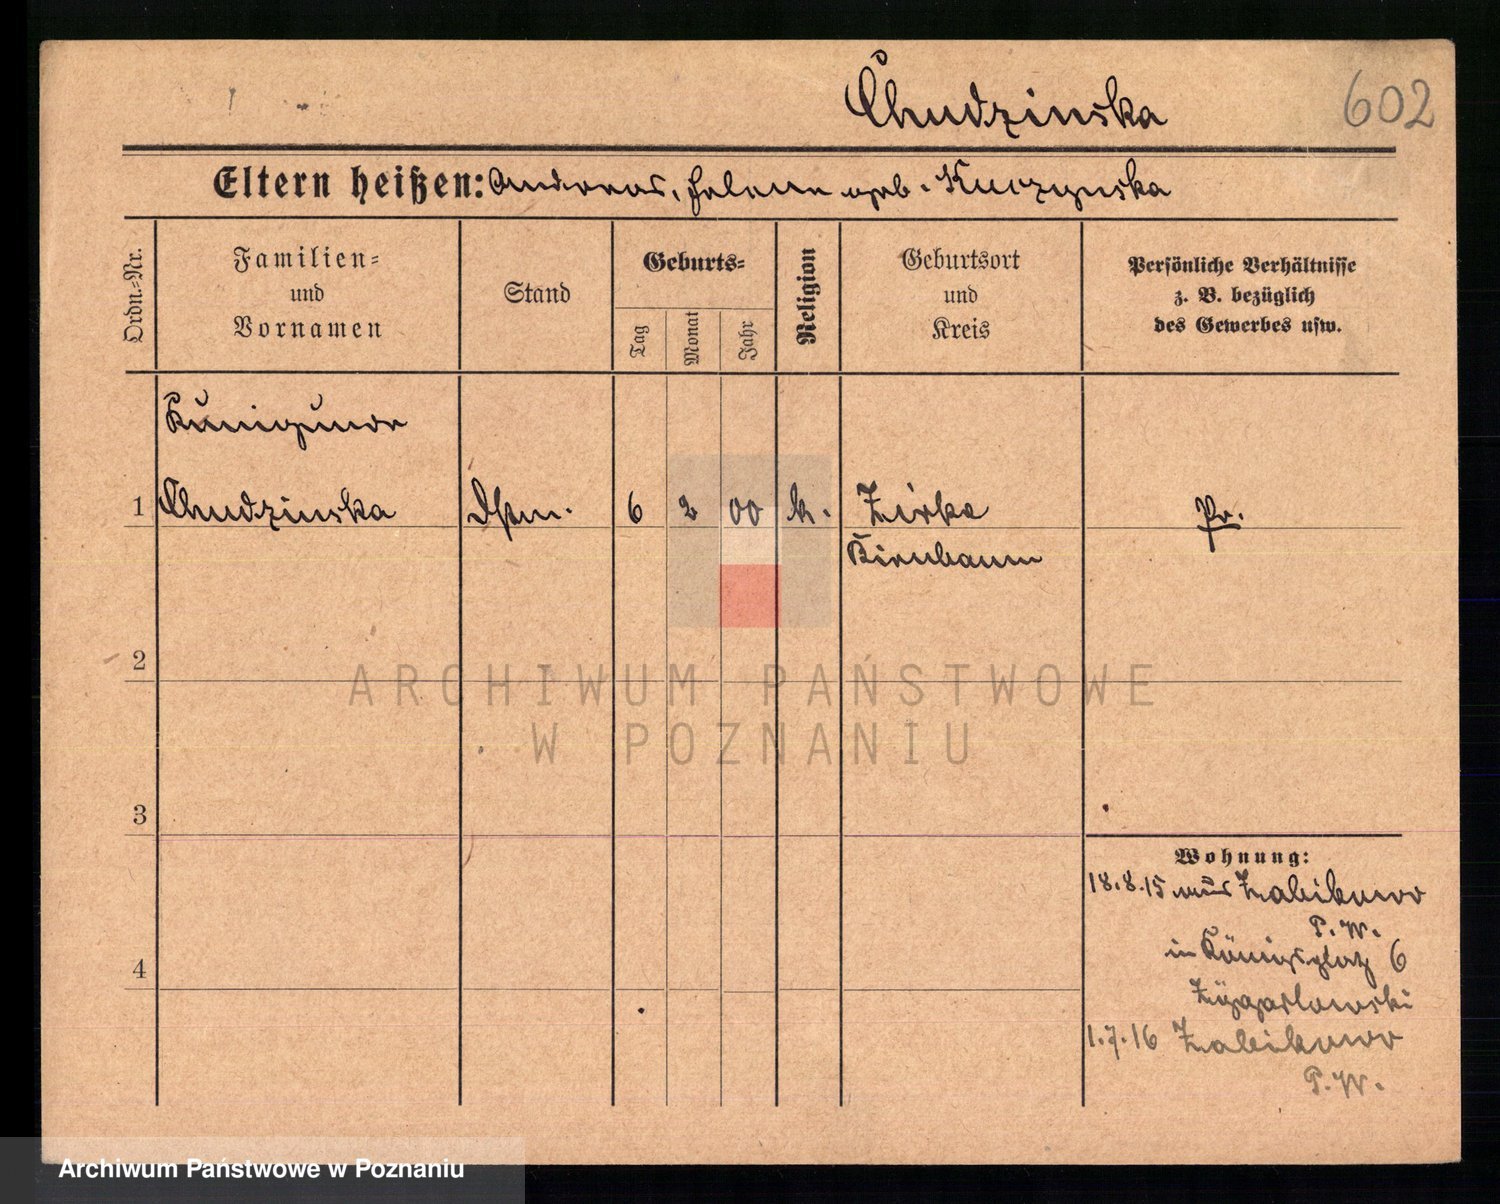 Chudzinska
602
Eltern heißen: Andreas, Helene geb. Kuczynska
Ordn.=Nr.
Familien=
und
Vornamen
Stand
Geburts=
Tag
Monat
Jahr
Religion
Geburtsort
und
Kreis
Persönliche Verhältnisse
z. B. bezüglich
des Gewerbes usw.
Kunigunde
1 Chudzinska Dstm. 6 2 00 k. Zirke Pr.
Birnbaum
2
3
4
Wohnung:
18.8.15 aus Zabikowo
P.W.
in Königsplatz 6
1.7.16 Zabikowo
P.W.
ARCHIWUM PAŃSTWOWE
W POZNANIU
Archiwum Państwowe w Poznaniu